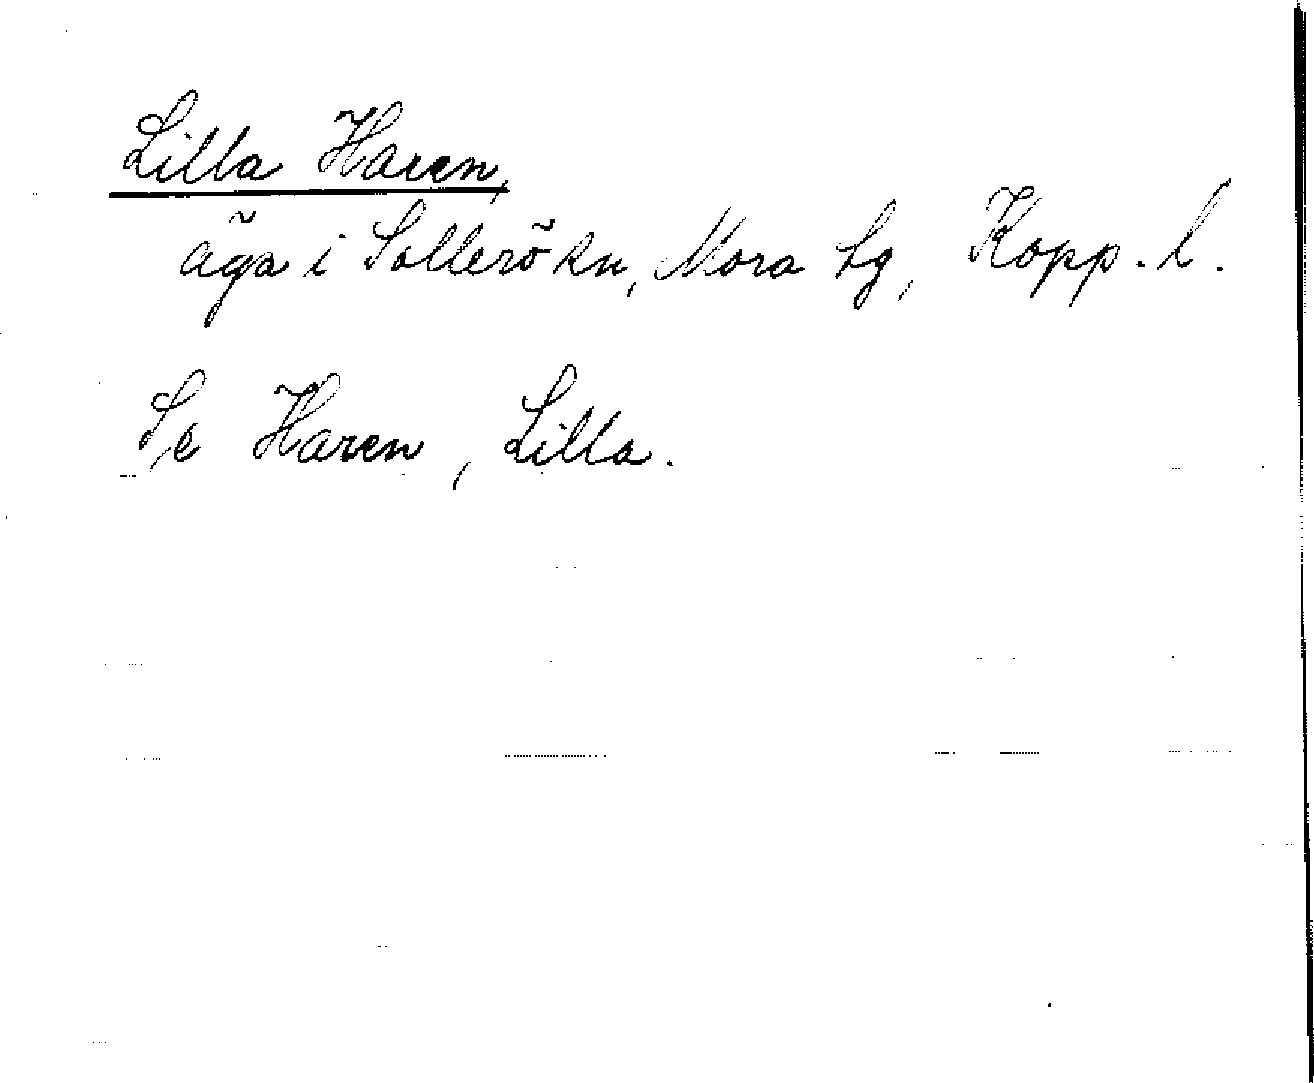 Lilla Haren,
äga i Sollerö sn, Mora tg, Kopp. l.
Se Haren, Lilla.